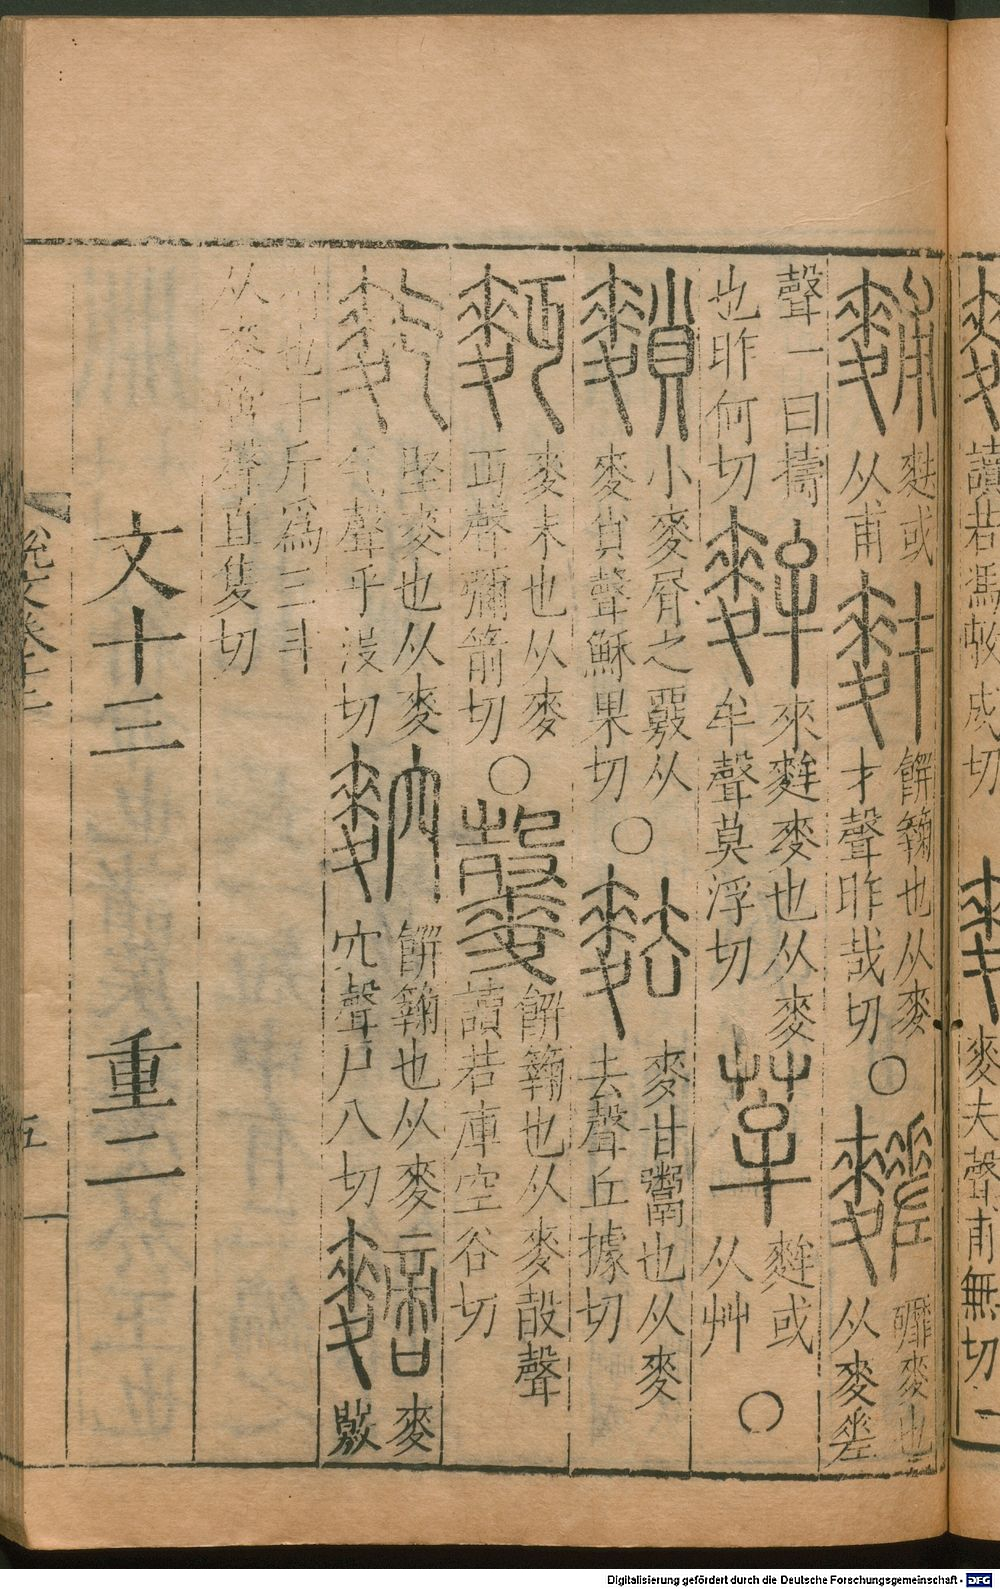 讀若馮敉戍切
麥夫聲甫無切一
𪌈 麩或从甫 𪌆 餅𥷚也从麥才聲昨哉切 ○ 䴾 䃺麥也从麥𢀩
聲一曰擣也昨何切 麰 來麰麥也从麥牟聲莫浮切 𦯔 麰或从艸 ○
䴹 小麥屑之覈从麥𧴪省聲穌果切 ○ 麮 麥甘鬻也从麥去聲丘據切
麪 麥末也从麥丏聲彌箭切 ○ 䴷 餅𥷚也从麥㱿聲讀若庫空谷切
麧 堅麥也从麥气聲乎沒切 䴬 餅𥷚也从麥穴聲戶八切 𪍡 麥覈
屑也十斤爲三斗从麥啻聲直隻切
文十三 重二
說文卷十二
五
Digitalisierung gefördert durch die Deutsche Forschungsgemeinschaft - DFG